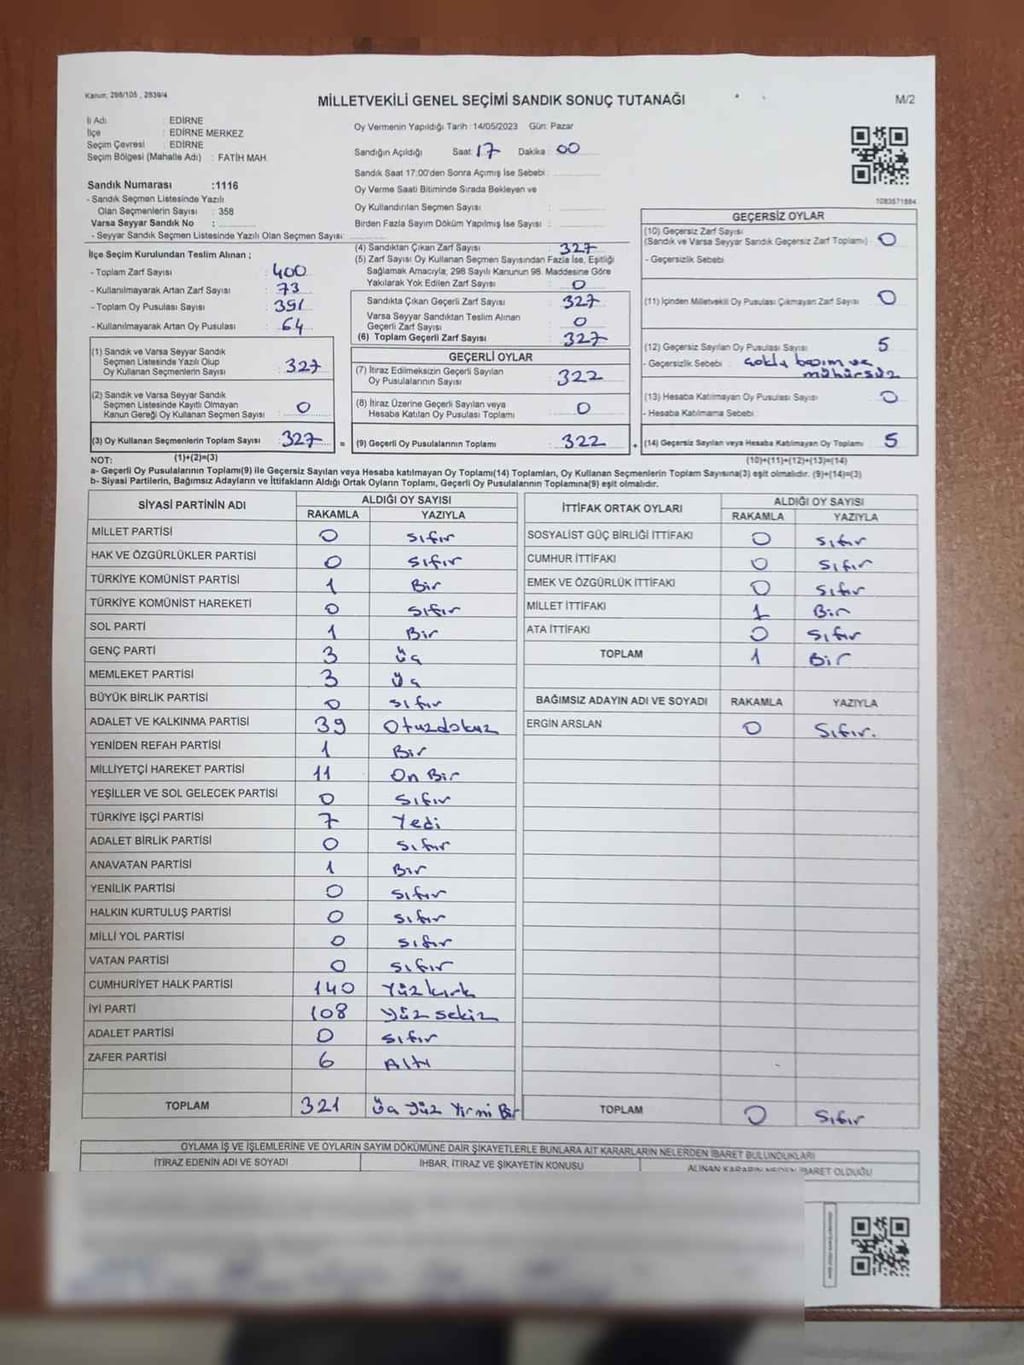 Kanun; 298/105 , 2839/4
MİLLETVEKİLİ GENEL SEÇİMİ SANDIK SONUÇ TUTANAĞI
M/2
İl Adı : EDİRNE
İlçe : EDİRNE MERKEZ
Seçim Çevresi : EDİRNE
Seçim Bölgesi (Mahalle Adı) : FATİH MAH.
Oy Vermenin Yapıldığı Tarih :14/05/2023 Gün: Pazar
Sandığın Açıldığı Saat: 17 Dakika: 00
Sandık Saat 17:00'den Sonra Açımış İse Sebebi :
Oy Verme Saati Bitiminde Sırada Bekleyen ve
Oy Kullandırılan Seçmen Sayısı :
Birden Fazla Sayım Döküm Yapılmış İse Sayısı :
Sandık Numarası :1116
- Sandık Seçmen Listesinde Yazılı
Olan Seçmenlerin Sayısı : 358
Varsa Seyyar Sandık No :
- Seyyar Sandık Seçmen Listesinde Yazılı Olan Seçmen Sayısı:
1083571884
İlçe Seçim Kurulundan Teslim Alınan ;
- Toplam Zarf Sayısı : 400
- Kullanılmayarak Artan Zarf Sayısı : 73
- Toplam Oy Pusulası Sayısı : 391
- Kullanılmayarak Artan Oy Pusulası : 64
(1) Sandık ve Varsa Seyyar Sandık
Seçmen Listesinde Yazılı Olup
Oy Kullanan Seçmenlerin Sayısı : 327
(2) Sandık ve Varsa Seyyar Sandık
Seçmen Listesinde Kayıtlı Olmayan
Kanun Gereği Oy Kullanan Seçmen Sayısı : 0
(3) Oy Kullanan Seçmenlerin Toplam Sayısı : 327
(1)+(2)=(3)
(4) Sandıktan Çıkan Zarf Sayısı : 327
(5) Zarf Sayısı Oy Kullanan Seçmen Sayısından Fazla İse, Eşitliği
Sağlamak Amacıyla; 298 Sayılı Kanunun 98. Maddesine Göre
Yakılarak Yok Edilen Zarf Sayısı : 0
Sandıkta Çıkan Geçerli Zarf Sayısı : 327
Varsa Seyyar Sandıktan Teslim Alınan
Geçerli Zarf Sayısı : 0
(6) Toplam Geçerli Zarf Sayısı : 327
GEÇERLİ OYLAR
(7) İtiraz Edilmeksizin Geçerli Sayılan
Oy Pusulalarının Sayısı : 322
(8) İtiraz Üzerine Geçerli Sayılan veya
Hesaba Katılan Oy Pusulası Toplamı : 0
= (9) Geçerli Oy Pusulalarının Toplamı : 322
GEÇERSİZ OYLAR
(10) Geçersiz Zarf Sayısı
(Sandık ve Varsa Seyyar Sandık Geçersiz Zarf Toplamı) : 0
- Geçersizlik Sebebi :
(11) İçinden Milletvekili Oy Pusulası Çıkmayan Zarf Sayısı : 0
(12) Geçersiz Sayılan Oy Pusulası Sayısı : 5
- Geçersizlik Sebebi : çoklu basım ve
mühürsüz
(13) Hesaba Katılmayan Oy Pusulası Sayısı : 0
- Hesaba Katılmama Sebebi :
+ (14) Geçersiz Sayılan veya Hesaba Katılmayan Oy Toplamı : 5
(10)+(11)+(12)+(13)=(14)
NOT:
a- Geçerli Oy Pusulalarının Toplamı(9) ile Geçersiz Sayılan veya Hesaba katılmayan Oy Toplamı(14) Toplamları, Oy Kullanan Seçmenlerin Toplam Sayısına(3) eşit olmalıdır. (9)+(14)=(3)
b- Siyasi Partilerin, Bağımsız Adayların ve İttifakların Aldığı Ortak Oyların Toplamı, Geçerli Oy Pusulalarının Toplamına(9) eşit olmalıdır.
SİYASİ PARTİNİN ADI ALDIĞI OY SAYISI
RAKAMLA YAZIYLA
MİLLET PARTİSİ 0 sıfır
HAK VE ÖZGÜRLÜKLER PARTİSİ 0 sıfır
TÜRKİYE KOMÜNİST PARTİSİ 1 Bir
TÜRKİYE KOMÜNİST HAREKETİ 0 sıfır
SOL PARTİ 1 Bir
GENÇ PARTİ 3 üç
MEMLEKET PARTİSİ 3 üç
BÜYÜK BİRLİK PARTİSİ 0 sıfır
ADALET VE KALKINMA PARTİSİ 39 Otuzdokuz
YENİDEN REFAH PARTİSİ 1 Bir
MİLLİYETÇİ HAREKET PARTİSİ 11 On Bir
YEŞİLLER VE SOL GELECEK PARTİSİ 0 sıfır
TÜRKİYE İŞÇİ PARTİSİ 7 Yedi
ADALET BİRLİK PARTİSİ 0 sıfır
ANAVATAN PARTİSİ 1 Bir
YENİLİK PARTİSİ 0 sıfır
HALKIN KURTULUŞ PARTİSİ 0 sıfır
MİLLİ YOL PARTİSİ 0 sıfır
VATAN PARTİSİ 0 sıfır
CUMHURİYET HALK PARTİSİ 140 Yüzkırk
İYİ PARTİ 108 Yüzsekiz
ADALET PARTİSİ 0 sıfır
ZAFER PARTİSİ 6 Altı
TOPLAM 321 üç Yüz Yirmi Bir
İTTİFAK ORTAK OYLARI ALDIĞI OY SAYISI
RAKAMLA YAZIYLA
SOSYALİST GÜÇ BİRLİĞİ İTTİFAKI 0 sıfır
CUMHUR İTTİFAKI 0 sıfır
EMEK VE ÖZGÜRLÜK İTTİFAKI 0 sıfır
MİLLET İTTİFAKI 1 Bir
ATA İTTİFAKI 0 sıfır
TOPLAM 1 Bir
BAĞIMSIZ ADAYIN ADI VE SOYADI RAKAMLA YAZIYLA
ERGİN ARSLAN 0 Sıfır.
TOPLAM 0 Sıfır
OYLAMA İŞ VE İŞLEMLERİNE VE OYLARIN SAYIM DÖKÜMÜNE DAİR ŞİKAYETLERLE BUNLARA AİT KARARLARIN NELERDEN İBARET BULUNDUKLARI
İTİRAZ EDENİN ADI VE SOYADI İHBAR, İTİRAZ VE ŞİKAYETİN KONUSU ALINAN KARARIN NEDEN İBARET OLDUĞU